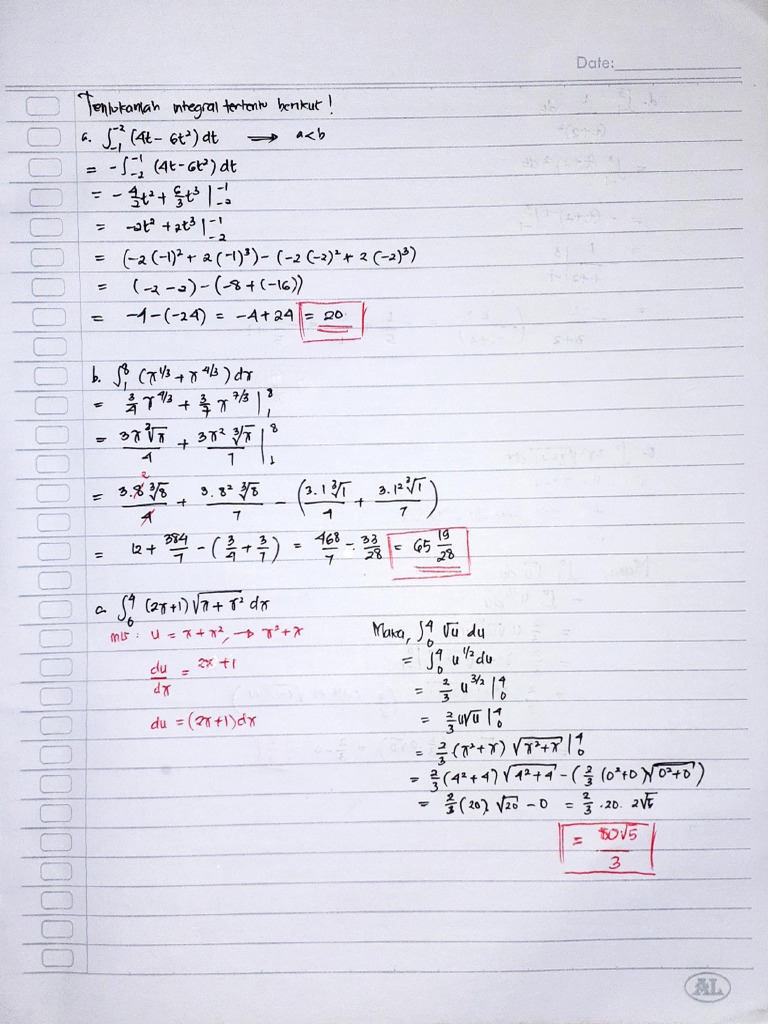 Date:
Tentukanlah integral tertentu berikut!
a. ∫₋₁⁻² (4t - 6t²) dt → a<b
= -∫₋₂⁻¹ (4t - 6t²) dt
= -4/2 t² + 6/3 t³ |₋₂⁻¹
= -2t² + 2t³ |₋₂⁻¹
= (-2(-1)² + 2(-1)³) - (-2(-2)² + 2(-2)³)
= (-2 - 2) - (-8 + (-16))
= -4 - (-24) = -4 + 24 = 20
b. ∫₁⁸ (x^1/3 + x^4/3) dx
= 3/4 x^4/3 + 3/7 x^7/3 |₁⁸
= 3x ∛x / 4 + 3x² ∛x / 7 |₁⁸
= 3.8 2 ∛8 / 4 + 3.8² ∛8 / 7 - (3.1 ∛1 / 4 + 3.1² ∛1 / 7)
= 12 + 384/7 - (3/4 + 3/7) = 468/7 - 33/28 = 65 19/28
∫₀⁴ (2x+1) √(x + x²) dx
mis: u = x + x², → x² + x
du/dx = 2x + 1
du = (2x+1) dx
Maka, ∫₀⁴ √u du
= ∫₀⁴ u^1/2 du
= 2/3 u^3/2 |₀⁴
= 2/3 u√u |₀⁴
= 2/3 (x² + x) √(x² + x) |₀⁴
= 2/3 (4² + 4) √(4² + 4) - (2/3 (0² + 0) √(0² + 0))
= 2/3 (20) √20 - 0 = 2/3 . 20 . 2√5
= 80√5 / 3
AL